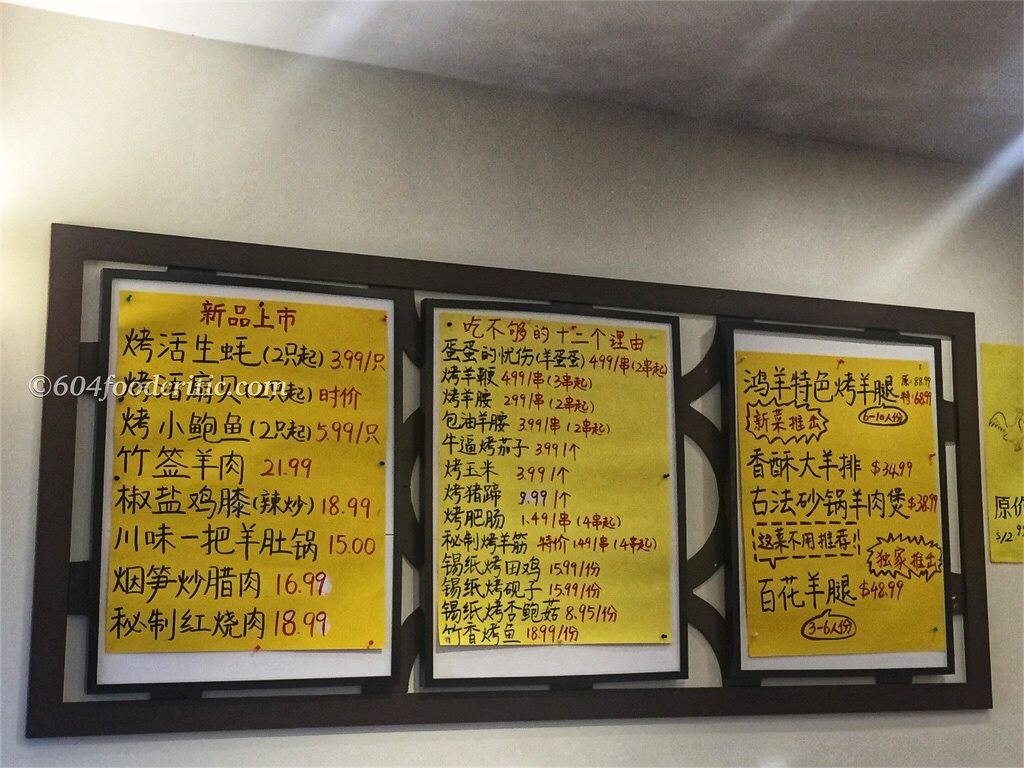 新品上市
烤活生蚝(2只起) 3.99/只
烤活扇贝(2只起) 时价
©604foodtific.com
烤小鲍鱼(2只起) 5.99/只
竹签羊肉 21.99
椒盐鸡膝(辣炒) 18.99
川味一把羊肚锅 15.00
烟笋炒腊肉 16.99
秘制红烧肉 18.99
吃不够的十二个理由
蛋蛋的忧伤(羊蛋蛋) 4.99/串(2串起)
烤羊鞭 4.99/串(3串起)
烤羊腰 2.99/串(2串起)
包油羊腰 3.99/串(2串起)
牛逼烤茄子 3.99/个
烤玉米 3.99/个
烤猪蹄 9.99/个
烤肥肠 1.49/串(4串起)
秘制烤羊筋 特价1.49/串(4串起)
锡纸烤田鸡 15.99/份
锡纸烤砚子 15.99/份
锡纸烤杏鲍菇 8.95/份
竹香烤鱼 18.99/份
鸿羊特色烤羊腿 原:88.99
特:68.99
新菜推出
6-10人份
香酥大羊排 $34.99
古法砂锅羊肉煲 $38.99
这菜不用推荐!
独家推出
百花羊腿 $48.99
3-6人份
原价